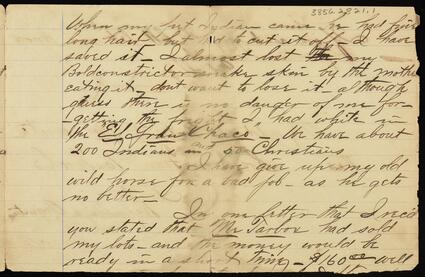 3856.2821.1
When my first Indian came he had five
long hair but had to cut it off I have
saved it – I almost lost my
Boldconstrictor snake skin by the moths
eating it – dont want to lose it – although
guess there is no danger of me for-
-getting the fright I had while in
the El Gran Chaco – We have about
200 Indians and 50 Christians
I have give up my old
wild horse for a bad job – as he gets
no better –
In one letter that I recd
you stated that Mr Tarbox had sold
my lots – and the money would be
ready in a short time – $160.00 well